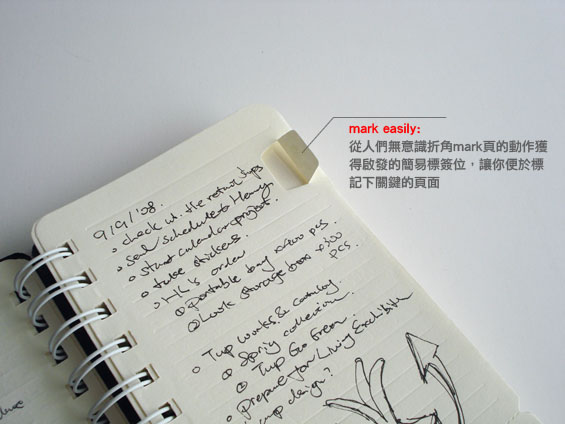 mark easily:
從人們無意識折角mark頁的動作獲
得啟發的簡易標簽位，讓你便於標
記下關鍵的頁面
9/9/'08.
check w. the return trips
send schedule to Henry.
start calendar project.
take stickers.
HK's order
① Portable bag x200 pcs.
② Look storage box x300
pcs.
Tup works & catalog
Spring collection.
Tup Go Green.
Prepare for Living Exhibite
design?